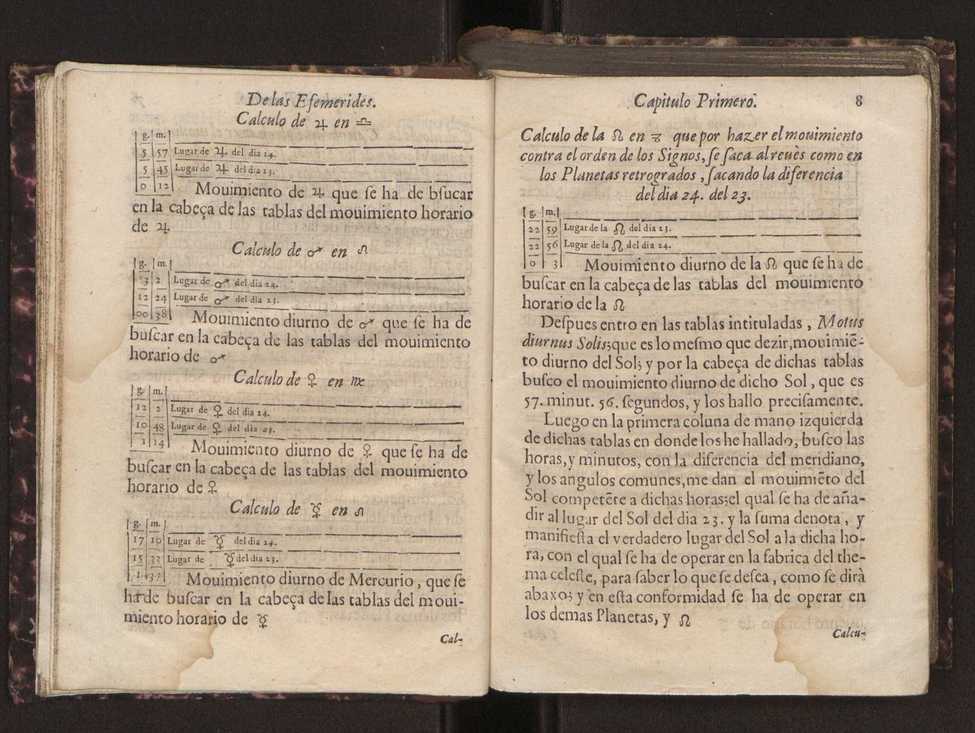 De las Efemerides.
Calculo de ♃ en ♎
g. m.
5 57 Lugar de ♃ del dia 24.
5 45 Lugar de ♃ del dia 23.
0 12 Mouimiento de ♃ que ſe ha de bſucar
en la cabeça de las tablas del mouimiento horario
de ♃.
Calculo de ♂ en ♌
g. m.
13 2 Lugar de ♂ del dia 24.
12 24 Lugar de ♂ del dia 23.
00 38 Mouimiento diurno de ♂ que ſe ha de
buſcar en la cabeça de las tablas del mouimiento
horario de ♂
Calculo de ♀ en ♍
g. m.
12 2 Lugar de ♀ del dia 24.
10 48 Lugar de ♀ del dia 23.
1 14 Mouimiento diurno de ♀ que ſe ha de
buſcar en la cabeça de las tablas del mouimiento
horario de ♀
Calculo de ☿ en ♌
g. m.
17 10 Lugar de ☿ del dia 24.
15 33 Lugar de ☿ del dia 23.
1 37 Mouimiento diurno de Mercurio, que ſe
ha de buſcar en la cabeça de las tablas del moui-
miento horario de ☿
Cal-
Capitulo Primero. 8
Calculo de la ☊ en ♉ que por hazer el mouimiento
contra el orden de los Signos, ſe ſaca al reuès como en
los Planetas retrogrados, ſacando la diferencia
del dia 24. del 23.
g. m.
22 59 Lugar de la ☊ del dia 23.
22 56 Lugar de la ☊ del dia 24.
0 3 Mouimiento diurno de la ☊ que ſe ha de
buſcar en la cabeça de las tablas del mouimiento
horario de la ☊
Deſpues entro en las tablas intituladas, Motus
diurnus Solis; que es lo meſmo que dezir, mouimiē-
to diurno del Sol; y por la cabeça de dichas tablas
buſco el mouimiento diurno de dicho Sol, que es
57. minut. 56. ſegundos, y los hallo preciſamente.
Luego en la primera coluna de mano izquierda
de dichas tablas en donde los he hallado, buſco las
horas, y minutos, con la diferencia del meridiano,
y los angulos comunes, me dan el mouimiēto del
Sol competēte a dichas horas; el qual ſe ha de aña-
dir al lugar del Sol del dia 23. y la ſuma denota, y
manifieſta el verdadero lugar del Sol a la dicha ho-
ra, con el qual ſe ha de operar en la fabrica del the-
ma celeſte, para ſaber lo que ſe deſea, como ſe dirà
abaxo; y en eſta conformidad ſe ha de operar en
los demas Planetas, y ☊
Calcu-